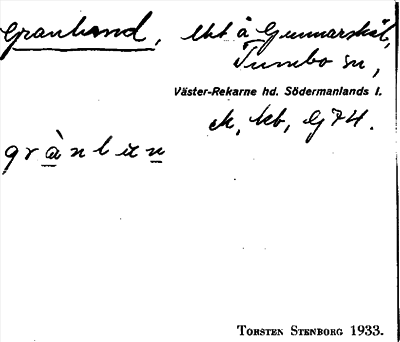 Granlund, tkt å Gunnarskäl,
Tumbo sn,
Väster-Rekarne hd. Södermanlands l.
ek, kb, G74.
grànlun
TORSTEN STENBORG 1933.